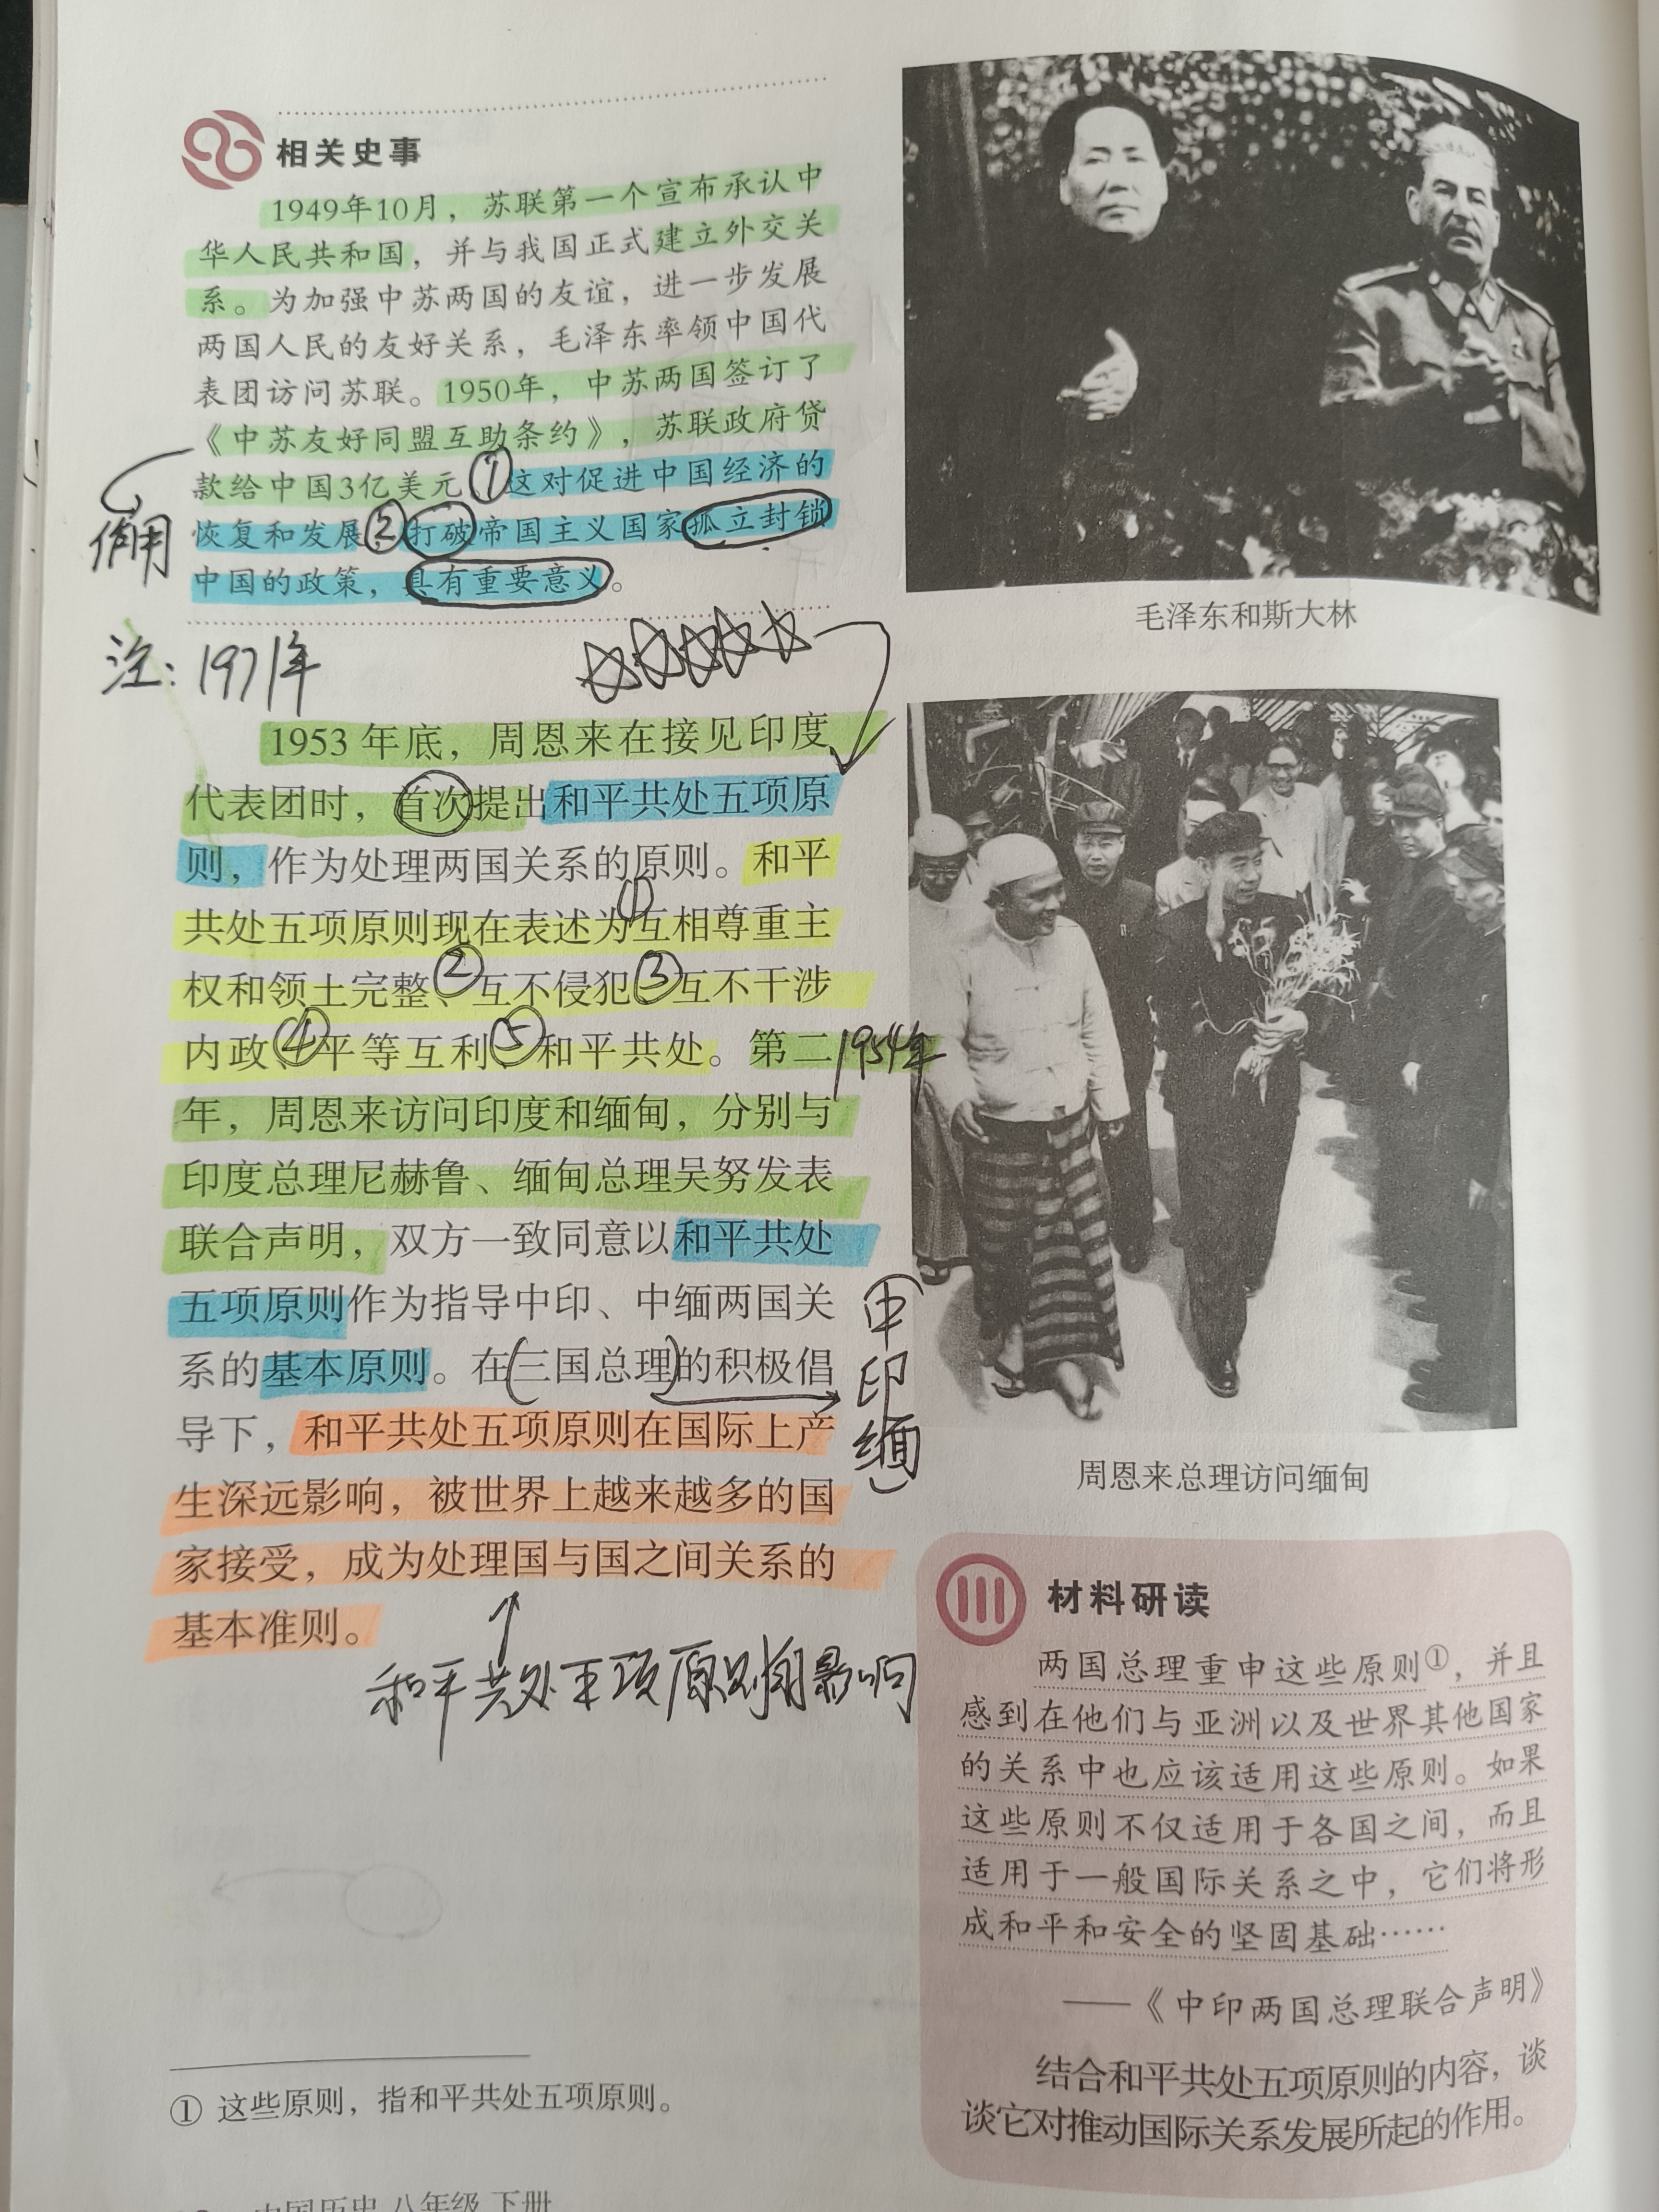 相关史事
1949年10月，苏联第一个宣布承认中
华人民共和国，并与我国正式建立外交关
系。为加强中苏两国的友谊，进一步发展
两国人民的友好关系，毛泽东率领中国代
表团访问苏联。1950年，中苏两国签订了
《中苏友好同盟互助条约》，苏联政府贷
款给中国3亿美元①这对促进中国经济的
恢复和发展②打破帝国主义国家孤立封锁
中国的政策，具有重要意义。
作用
注：1971年
1953年底，周恩来在接见印度
代表团时，首次提出和平共处五项原
则，作为处理两国关系的原则。和平
共处五项原则现在表述为①互相尊重主
权和领土完整、②互不侵犯③互不干涉
内政④平等互利⑤和平共处。第二
1954年
年，周恩来访问印度和缅甸，分别与
印度总理尼赫鲁、缅甸总理吴努发表
联合声明，双方一致同意以和平共处
五项原则作为指导中印、中缅两国关
系的基本原则。在(三国总理)的积极倡
导下，和平共处五项原则在国际上产
生深远影响，被世界上越来越多的国
家接受，成为处理国与国之间关系的
基本准则。
(中
印
缅)
和平共处五项原则的影响
① 这些原则，指和平共处五项原则。
中国历史 八年级 下册
毛泽东和斯大林
周恩来总理访问缅甸
材料研读
两国总理重申这些原则①，并且
感到在他们与亚洲以及世界其他国家
的关系中也应该适用这些原则。如果
这些原则不仅适用于各国之间，而且
适用于一般国际关系之中，它们将形
成和平和安全的坚固基础……
——《中印两国总理联合声明》
结合和平共处五项原则的内容，谈
谈它对推动国际关系发展所起的作用。